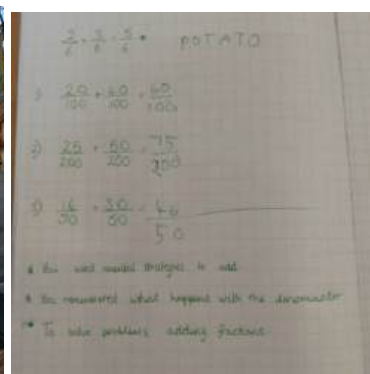 2/6 + 3/6 = 5/6 • POTATO
1) 20/100 + 40/100 = 60/100
2) 25/200 + 50/200 = 75/200
3) 16/50 + 30/50 = 46/50
You used mental strategies to add.
You remembered what happens with the denominator
To solve problems adding fractions.